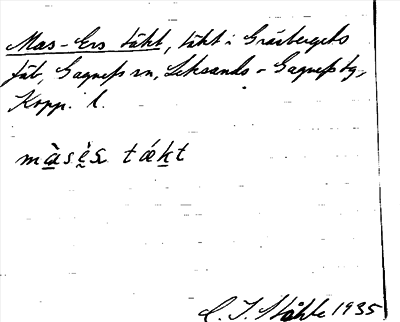 Mas-Ers täkt, täkt i Gråsbergets
fäb, Gagnefs sn, Leksands-Gagnefs tg,
Kopp. l.
màsès tǽkt
C. I. Ståhle 1935